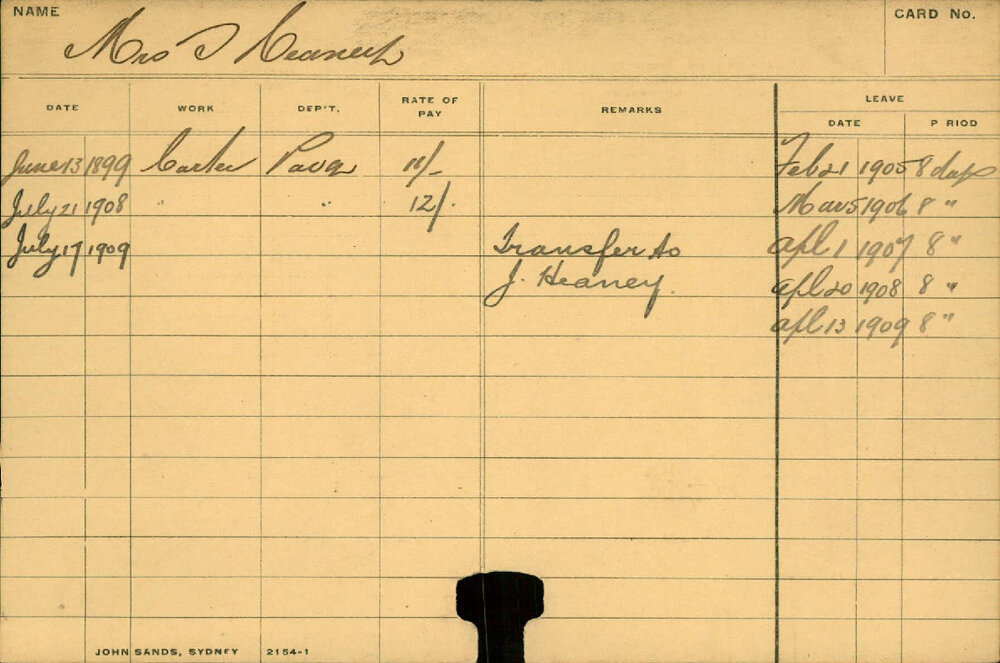 NAME
CARD No.
Mrs J Heaney
LEAVE
DATE WORK DEP'T. RATE OF PAY REMARKS DATE P RIOD
June 13 1899 Carter Pavg 11/- Feb 21 1905 8 days
July 21 1908 " " 12/- Mar 5 1906 8 "
July 17 1909 Transfer to Apl 1 1907 8 "
J. Heaney. Apl 20 1908 8 "
Apl 13 1909 8 "
JOHN SANDS, SYDNEY 2154-1